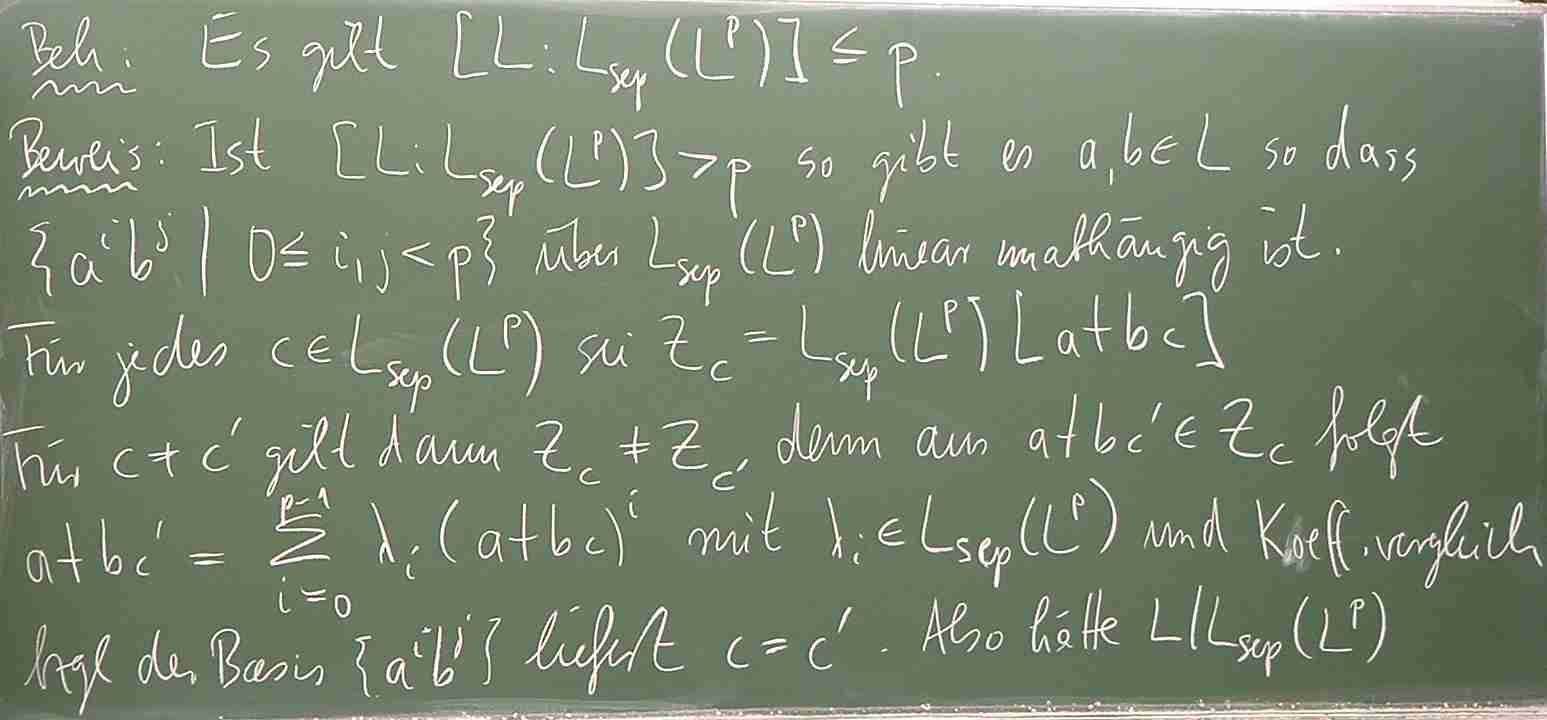 Beh: Es gilt [L : L_sep (L^p)] ≤ p.
Beweis: Ist [L : L_sep (L^p)] > p so gibt es a, b ∈ L so dass
{a^i b^j | 0 ≤ i, j < p} über L_sep (L^p) linear unabhängig ist.
Für jedes c ∈ L_sep (L^p) sei Z_c = L_sep (L^p) [a+bc]
Für c ≠ c' gilt dann Z_c ≠ Z_c', denn aus a+bc' ∈ Z_c folgt
a+bc' = ∑_{i=0}^{p-1} λ_i (a+bc)^i mit λ_i ∈ L_sep (L^p) und Koeff.vergleich
bzgl der Basis {a^i b^j} liefert c = c'. Also hätte L/L_sep (L^p)